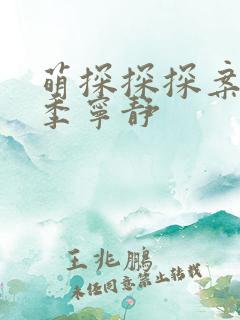 萌探探探案
季寧静
王兆鹏
未经同意禁止转载